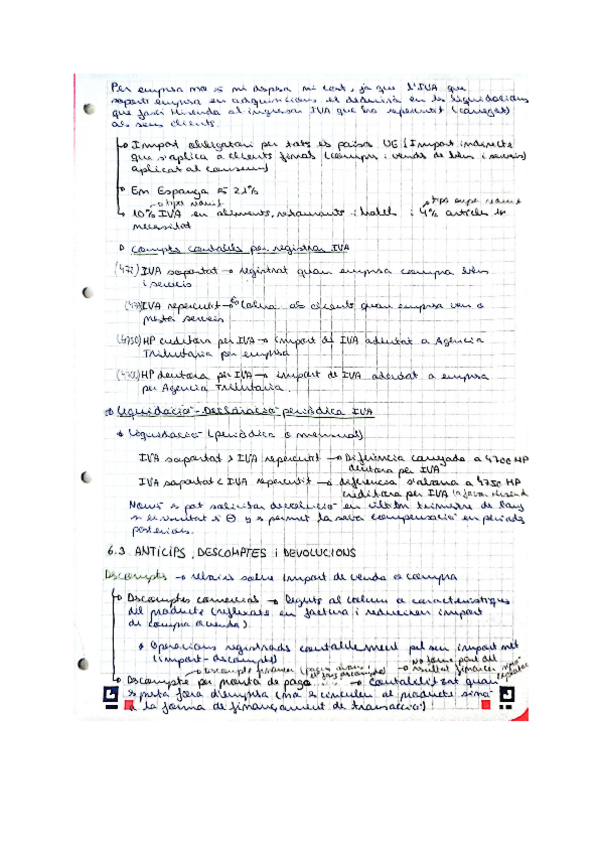 Per empresa no és ni despesa ni cost, ja que l'IVA que
suporti empresa en adquisicions el deduirà en les liquidacions
que farà Hisenda al ingressar IVA que ha repercutit (carregat)
als seus clients.
Impost obligatori per tots els països UE (Impost indirecte
que s'aplica a clients finals (compra i venda de béns i serveis)
aplicat al consum)
En Espanya és 21%
tipus reduït tipus super reduït
10% IVA en aliments, restaurants i hotels i 4% articles 1a
necessitat
Comptes comptables per registrar IVA
(472) IVA suportat → registrat quan empresa compra béns
i serveis
(477) IVA repercutit → Es cobra als clients quan empresa ven o
presta serveis
(4750) HP creditora per IVA → import de IVA adeutat a Agència
Tributària per empresa
(4700) HP deutora per IVA → import de IVA adeutat a empresa
per Agència Tributària.
Liquidació - Declaració periòdica IVA
Liquidació (periòdica o mensual)
IVA suportat > IVA repercutit → Diferència carregada a 4700 HP
deutora per IVA
IVA suportat < IVA repercutit → diferència s'abona a 4750 HP
creditora per IVA a favor Hisenda
Només es pot sol·licitar devolució en últim trimestre de l'any
si resultat és ⊖ y es permet la seva compensació en períodes
posteriors.
6.3 ANTICIPS, DESCOMPTES i DEVOLUCIONS
Descomptes → rebaixes sobre import de venda o compra
Descomptes comercials → Deguts al volum o característiques
del producte (reflexats en factura i redueixen import
de compra o venda)
Operacions registrades comptablement pel seu import net
(import - descompte)
Descompte financer (pagues abans i et fas descompte) → No forma part del
resultat financer
Descompte per pronta de pago → Comptabilitzat quan
es pacta fora d'empresa (no es vinculen al producte sinó
a la forma de finançament de transacció)